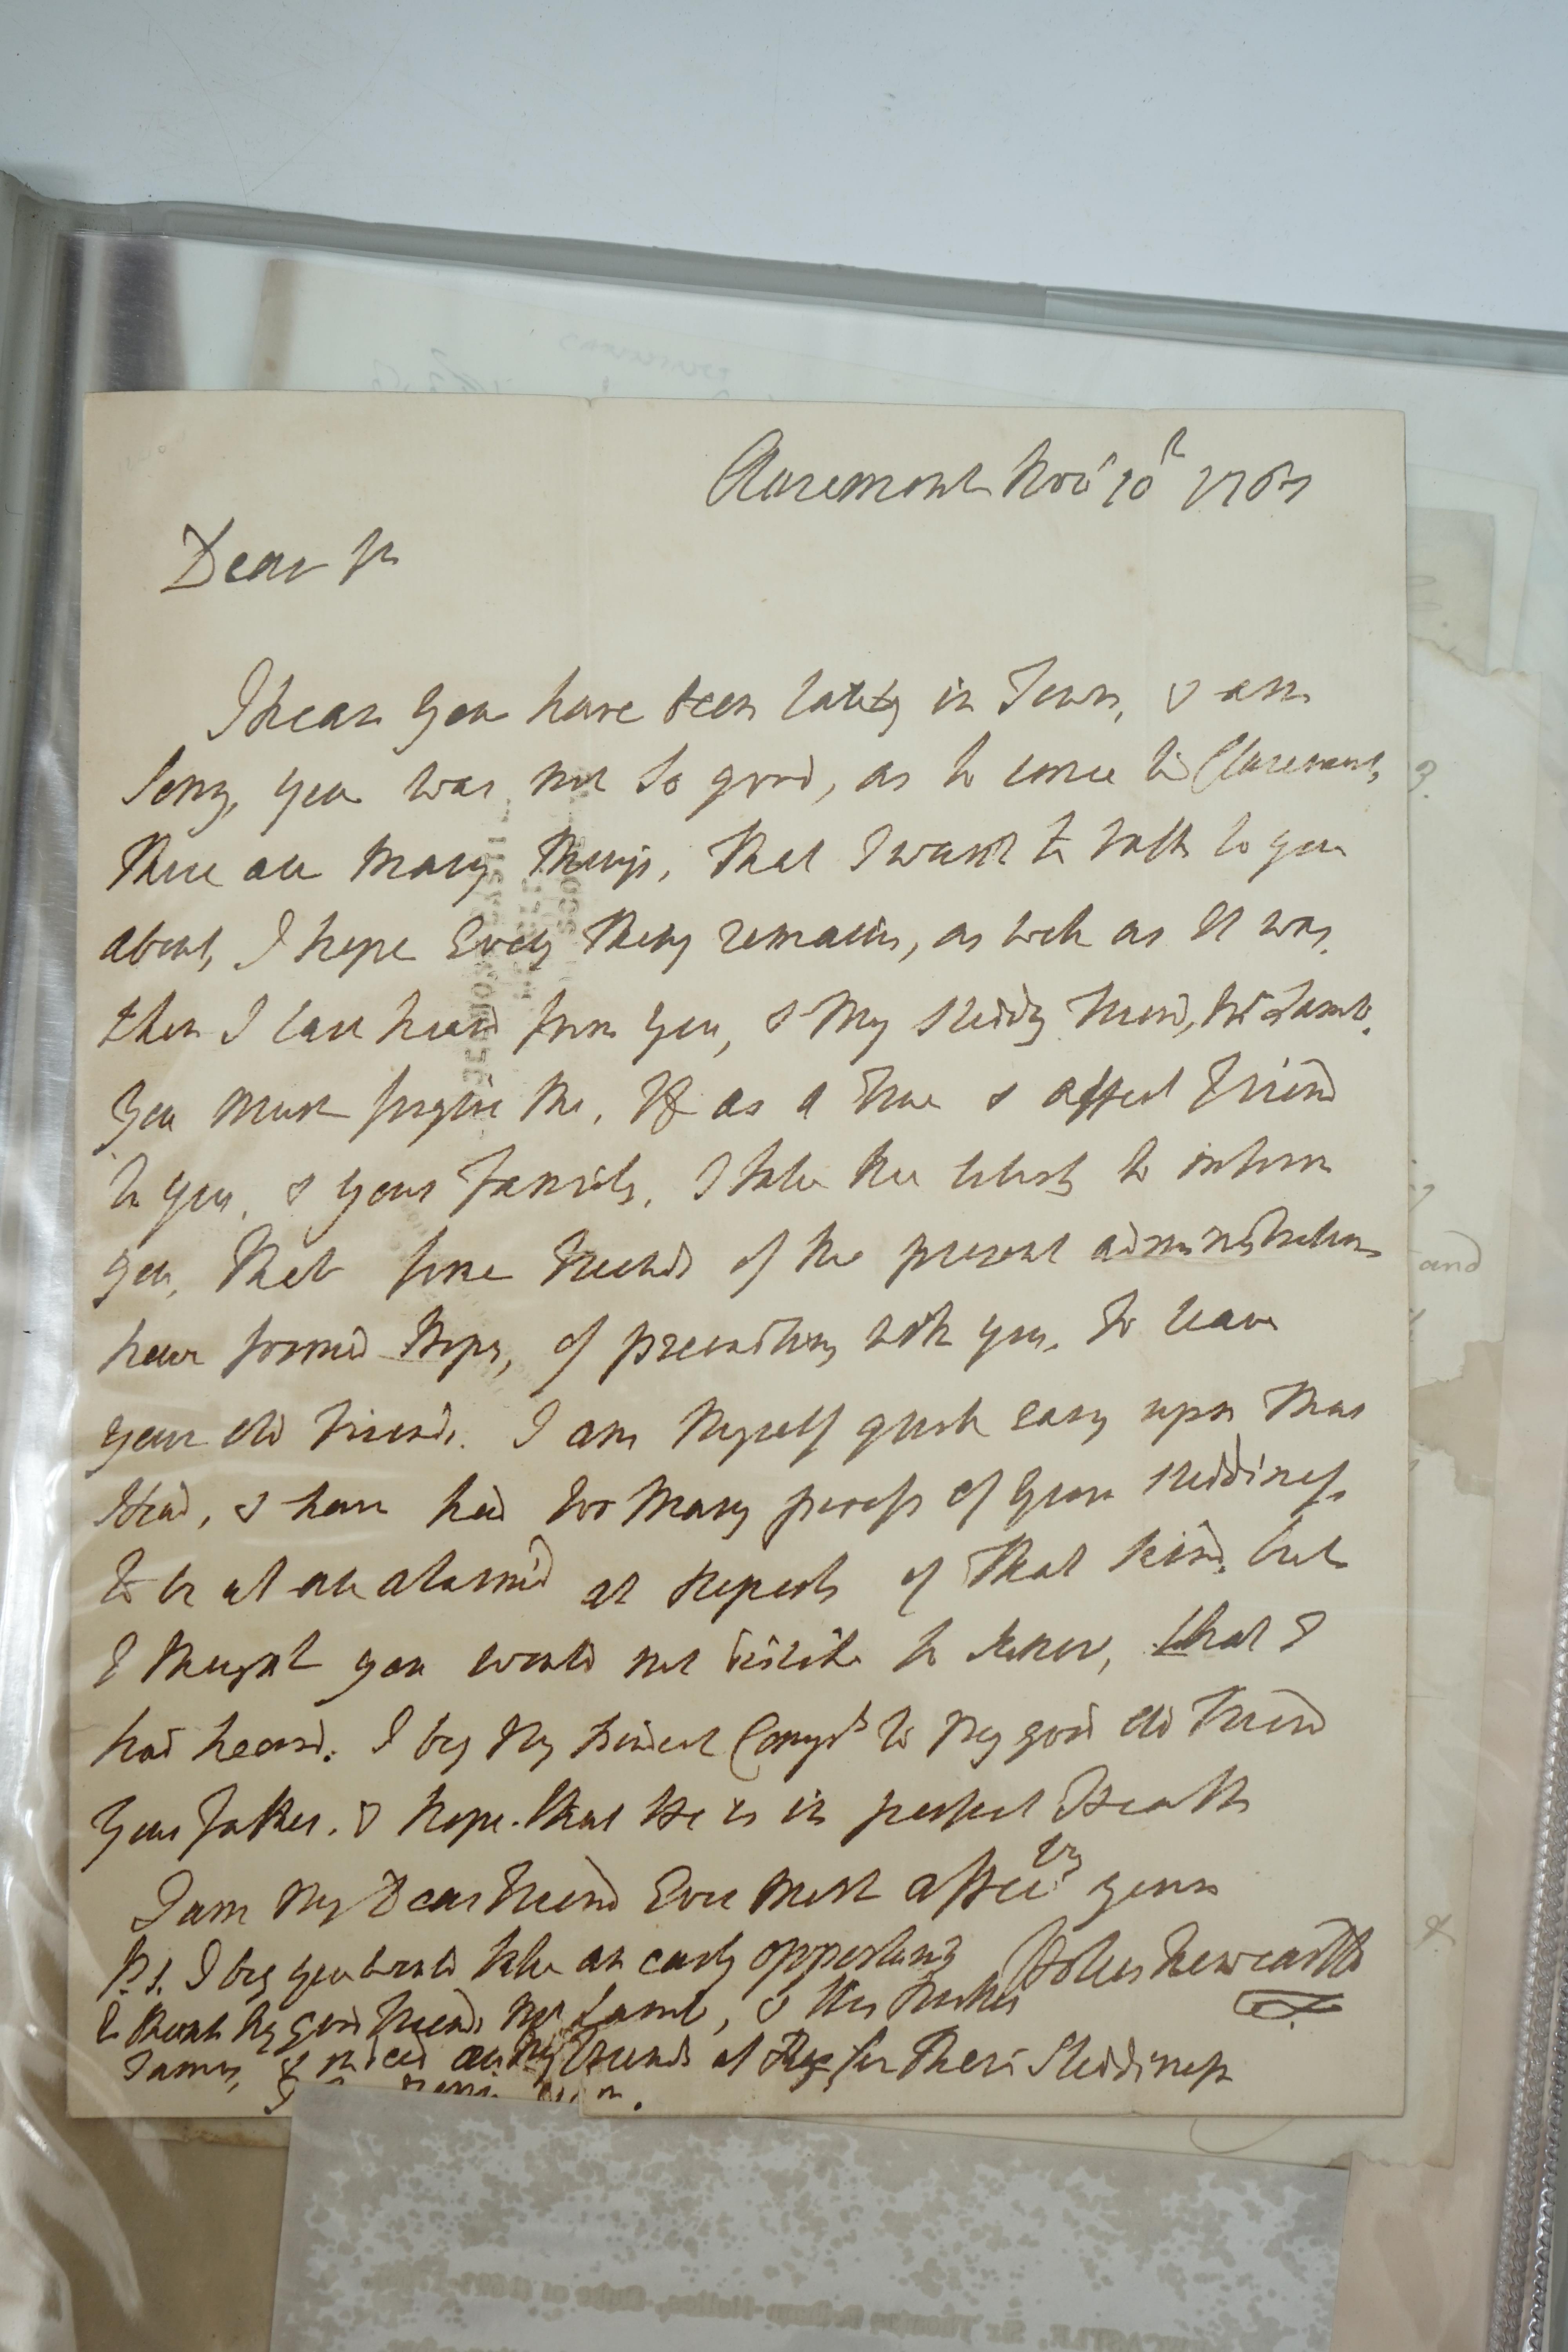 Claremont Novr 10th 1767
Dear Sr
I hear you have been lately in Town, & am
sorry, you was not so good, as to come to Claremont,
There are many things, that I want to talk to you
about, I hope Every thing remains, as well as It was,
when I last heard from you, & my steddy friend, Mr Lamb.
You must forgive me, If as a true & affect friend
to you, & your Family, I take the liberty to inform
you, that some friends of the present administration
have formed Hopes, of prevailing with you, to leave
your old friends. I am myself quite easy upon that
Head, & have had too many proofs of your steddiness,
to be at all alarmed at Reports of that kind, but
I thought you would not dislike to know, that I
had heard. I beg my kindest Compts to my good old Friend
your Father, & hope that He is in perfect Health
I am my Dear Friend Ever most affecly yours
Holles Newcastle
P.S. I beg you would take an early opportunity
to thank my good friends Mr Lamb, & His Brother
James, & indeed all my Friends at Rye for their Steddiness